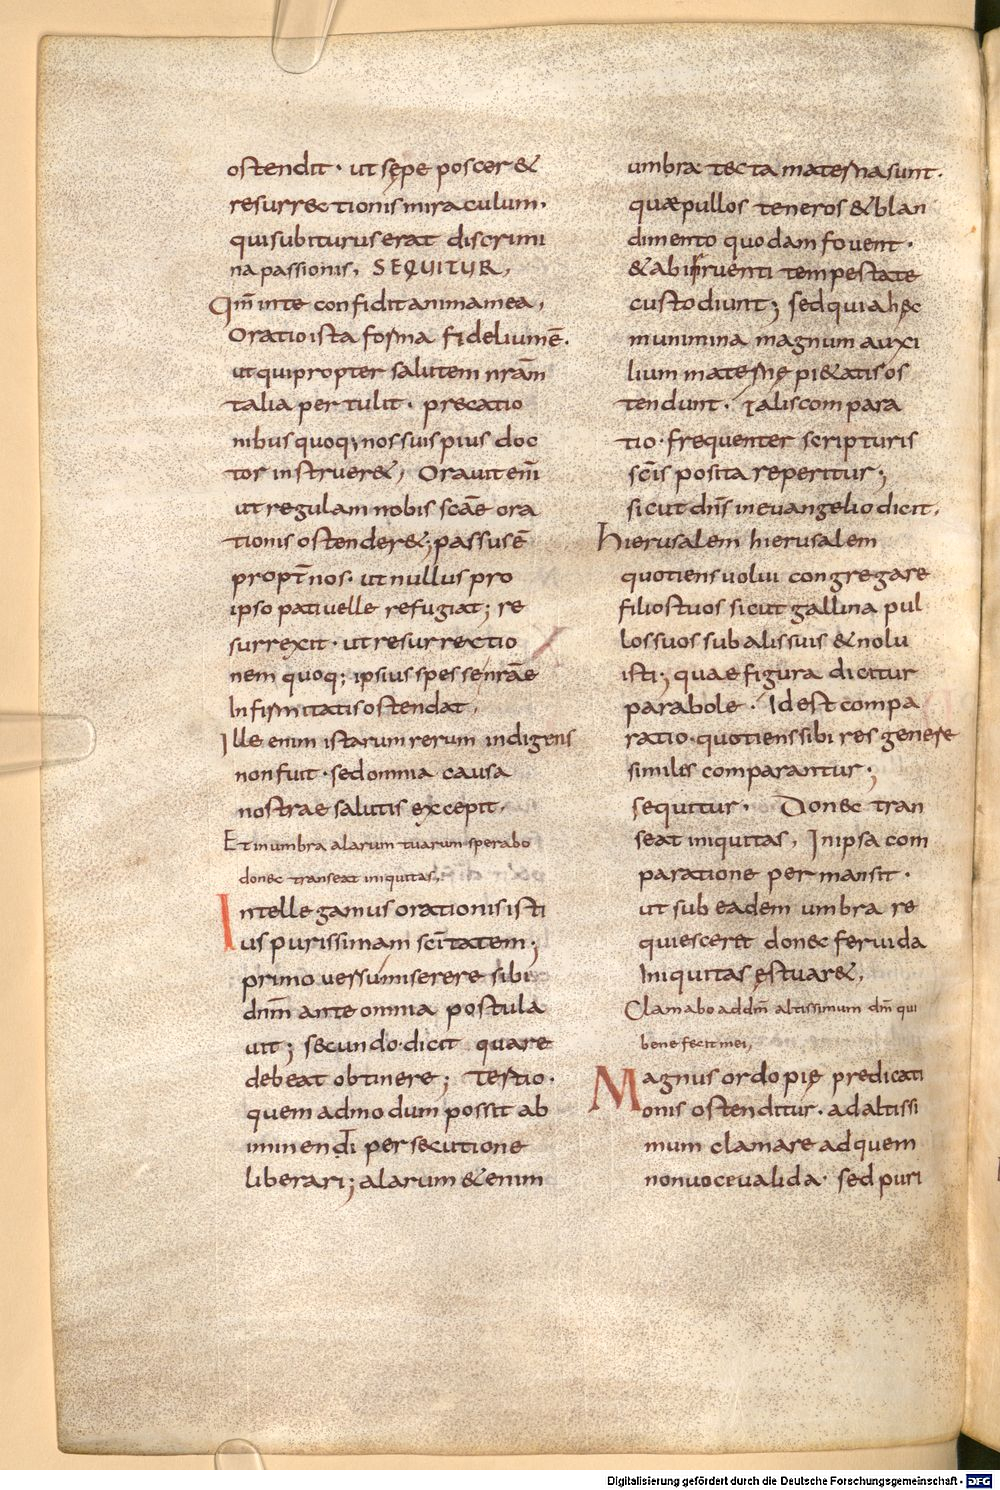 ostendit · ut sępe poscer&
resurrectionis miraculum.
qui subiturus erat discrimi
na passionis, SEQUITUR,
Qm̄ inte confidit anima mea,
Oratio ista forma fidelium ē.
ut qui propter salutem nrām
talia pertulit · precatio
nibus quoq; nos suis pius doc
tor instruer&, Orauit eni͞
ut regulam nobis scāe ora
tionis ostender&; passus ē
propt̄ nos · ut nullus pro
ipso pati uelle refugiat; re
surrexit · ut resurrectio
nem quoq; ipsius spes se nrāe
Infirmitatis ostendat,
Ille enim istarum rerum indigens
non fuit · sed omnia causa
nostrae salutis excepit,
Et in umbra alarum tuarum sperabo
donec transeat iniquitas,
Intellegamus orationis isti
us purissimam scītatem;
primo uersu miserere sibi
dnm̄ ante omnia postula
uit; secundo · dicit quare
debeat obtinere; Tertio ·
quemadmodum possit ab
imminenti persecutione
liberari; alarum &enim
umbra tecta materna sunt.
quæ pullos teneros & blan
dimento quodam fouent ·
& ab irruenti tempestate
custodiunt; sed quia hęc
munimina magnum auxi
lium maternę pi&atis os
tendunt. Talis compara
tio · frequenter scripturis
scīs posita reperitur;
sicut dns̄ in euangelio dicit,
Hierusalem hierusalem
quotiens uolui congregare
filios tuos sicut gallina pul
los suos sub alis suis & nolu
isti; quae figura dicitur
parabole. Id est compa
ratio · quotiens sibi res genere
similes comparantur;
sequitur. Donec tran
seat iniquitas, In ipsa com
paratione permansit ·
ut sub eadem umbra re
quiesceret donec feruida
Iniquitas ęstuar&,
Clamabo ad dm̄ altissimum dm̄ qui
bene fecit mei,
Magnus ordo pię predicati
onis ostenditur · ad altissi
mum clamare ad quem
non uoce ualida · sed puri
Digitalisierung gefördert durch die Deutsche Forschungsgemeinschaft - DFG